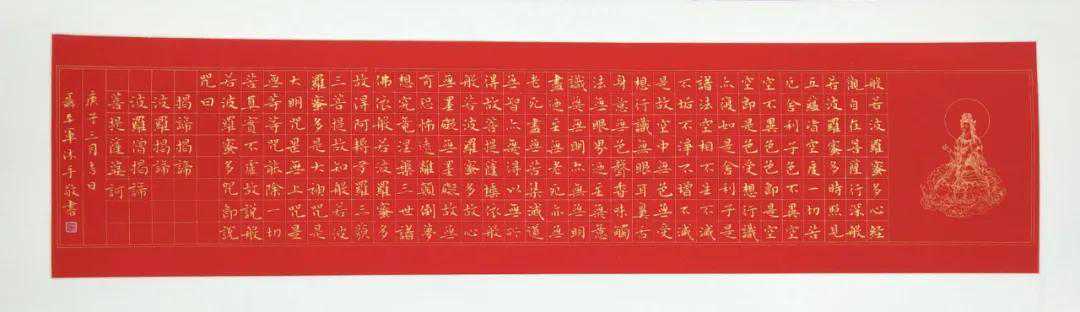 般若波羅蜜多心經
觀自在菩薩行深般
若波羅蜜多時照見
五蘊皆空度一切苦
厄舍利子色不異空
空不異色色即是空
空即是色受想行識
亦復如是舍利子是
諸法空相不生不滅
不垢不淨不增不減
是故空中無色無受
想行識無眼耳鼻舌
身意無色聲香味觸
法無眼界乃至無意
識界無無明亦無無明
盡乃至無老死亦無
老死盡無苦集滅道
無智亦無得以無所
得故菩提薩埵依般
若波羅蜜多故心
無罣礙無罣礙故無
有恐怖遠離顛倒夢
想究竟涅槃三世諸
佛依般若波羅蜜多
故得阿耨多羅三藐
三菩提故知般若波
羅蜜多是大神咒是
大明咒是無上咒是
無等等咒能除一切
苦真實不虛故說般
若波羅蜜多咒即說
咒曰
揭諦揭諦
波羅揭諦
波羅僧揭諦
菩提薩婆訶
庚子三月吉日
軍沐手敬書